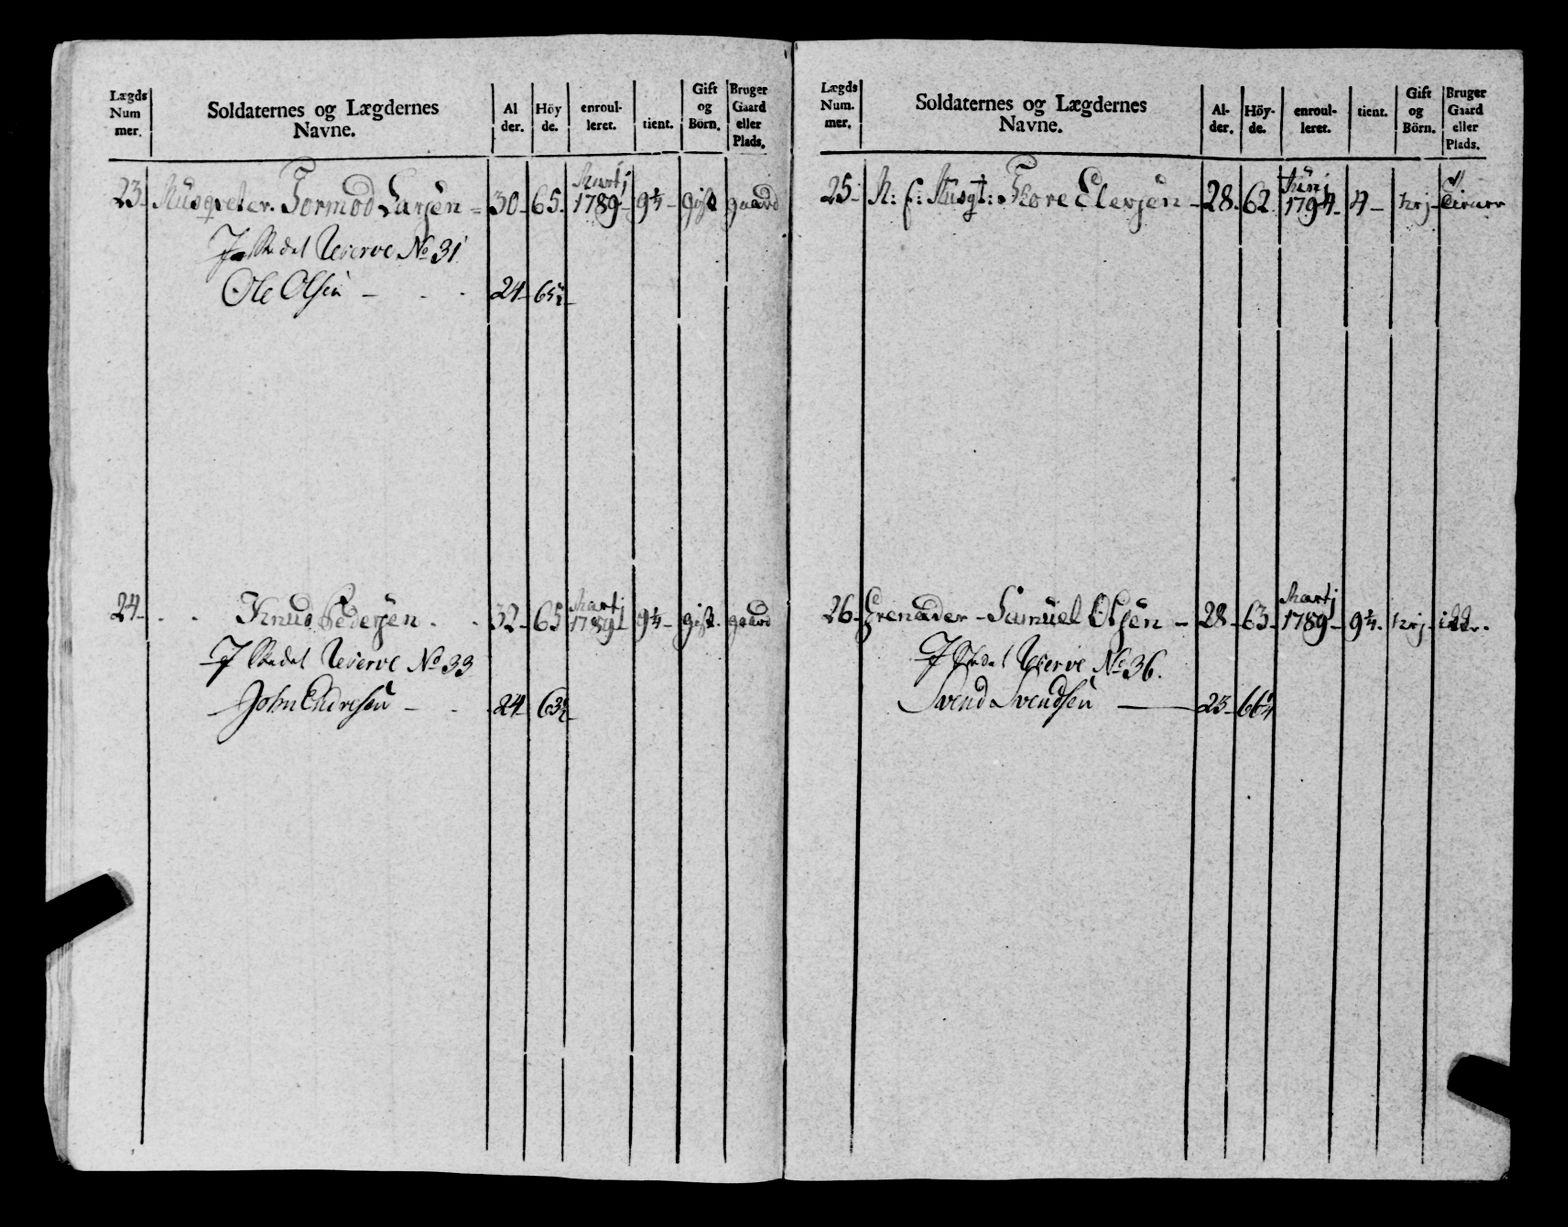 Lægds Num mer. Soldaternes og Lægdernes Navne. Al der. Höy de. enroul- leret. tient. Gift og Börn. Bruger Gaard eller Plads.
23. Musqveter. Tormod Larsen = 30. 65. Martj 1789. 9¼ Gift gaard
I Stædet Reserve No 31
Ole Olsen - - - 24 65½
24. - - Knud Pedersen - - 32 65 Martj 1789 9¼ gift. gaard
I Stædet Reserve No 33
John - - 24 63½
Lægds Num. mer. Soldaternes og Lægdernes Navne. Al- der. Höy- de. enroul- leret. tient. Gift og Börn. Bruger Gaard eller Plads.
25. N: f: Musqt: Thore - 28. 62. Junj 1794. 4 - nej
26. Grenadeer - Samuel Olsen - 28. 63. Martj 1789 9¼. nej - iddr.
I Stædet Reserve No 36.
Svend Svendsen - 23 66¼